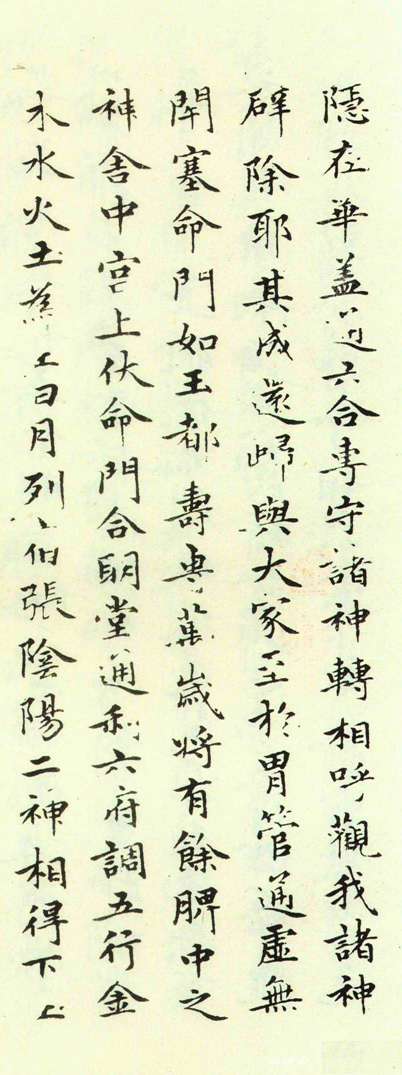 隱在華盖六合專守諸神轉相呼觀我諸神
辟除耶其成還歸與大家至於胃管通虛無
閉塞命門如玉都壽專萬歲將有餘脾中之
神舍中宮上伏命門合明堂通利六府調五行金
木水火土日月列張陰陽二神相得下